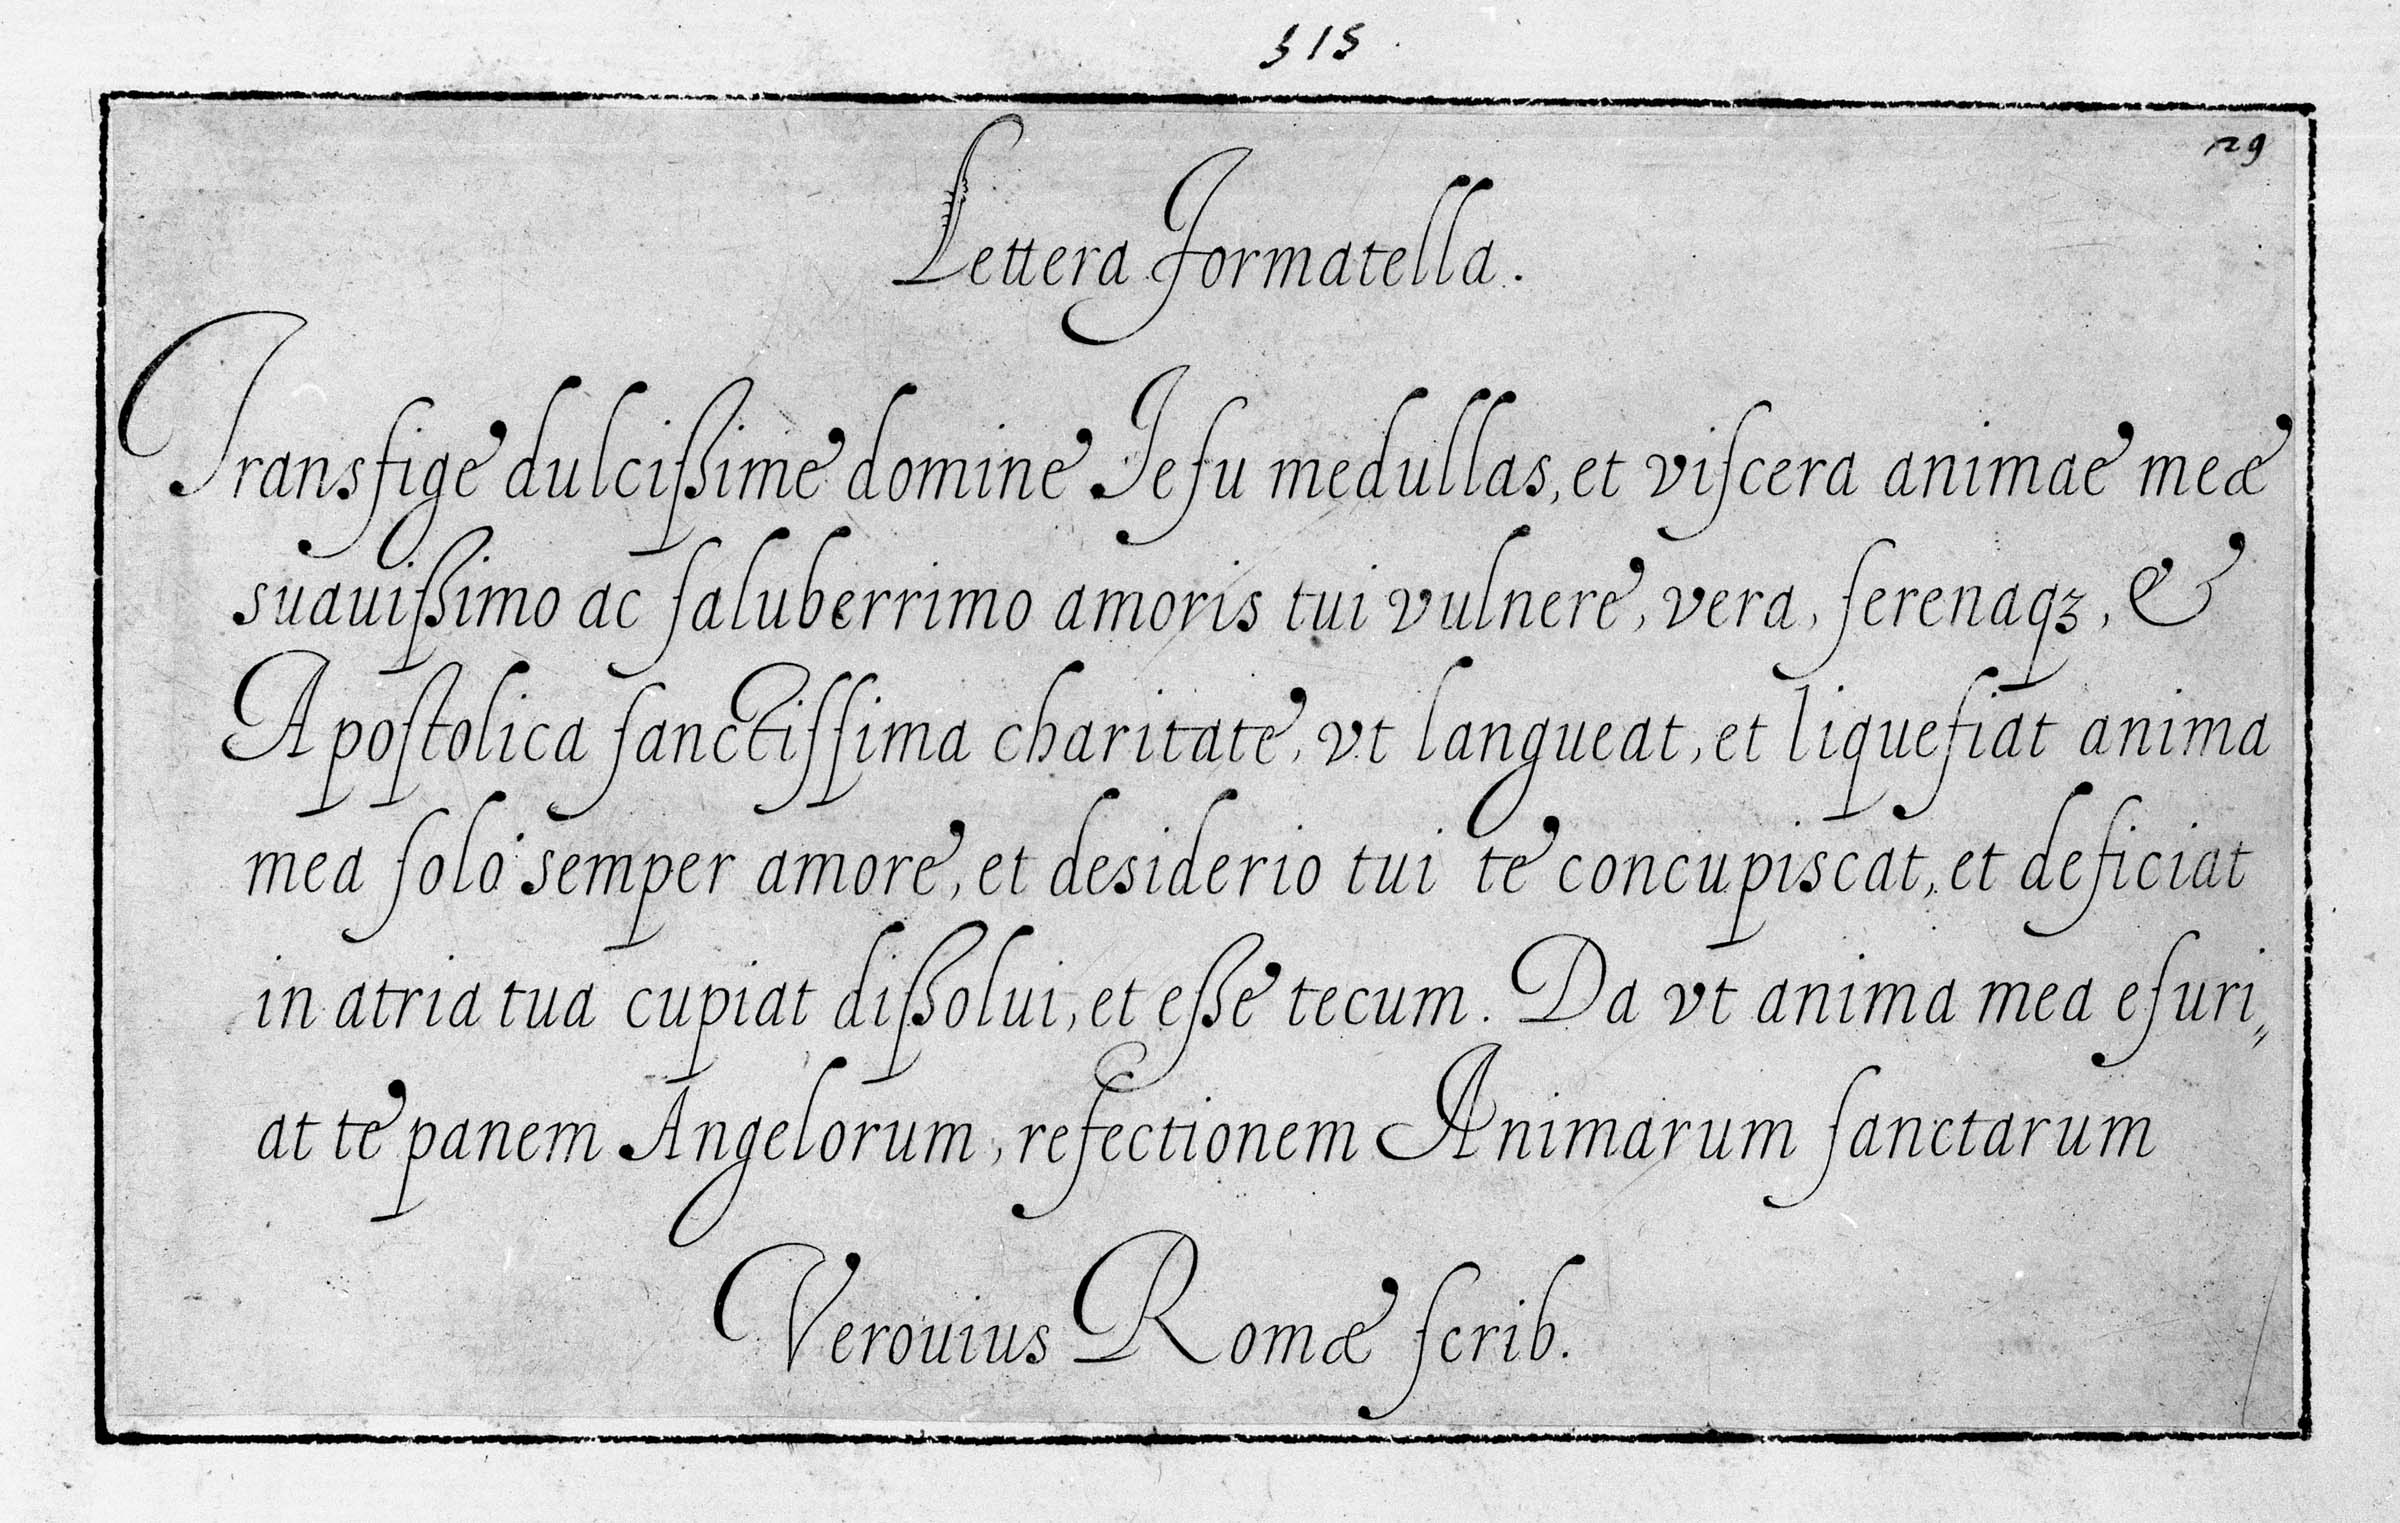 315
29
Lettera Formatella.
Transfige dulcißime domine Iesu medullas, et viſcera animae meæ
suauißimo ac ſaluberrimo amoris tui vulnere, vera, ſerenaqꝫ, &
Apoſtolica ſanctiſſima charitate, vt langueat, et liquefiat anima
mea ſolo semper amore, et desiderio tui te concupiscat, et deficiat
in atria tua cupiat dißolui, et eße tecum. Da vt anima mea eſuri„
at te panem Angelorum, refectionem Animarum ſanctarum
Verouius Romæ ſcrib.